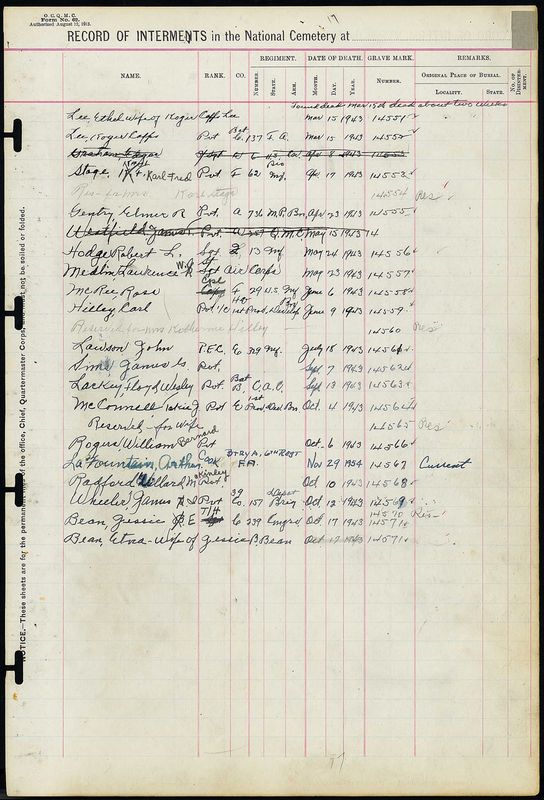 O. C. Q. M. C.
Form No. 69.
Authorized August 12, 1915.
17
RECORD OF INTERMENTS in the National Cemetery at
NAME. RANK. CO. REGIMENT. DATE OF DEATH. GRAVE MARK. REMARKS.
NUMBER. STATE. ARM. MONTH. DAY. YEAR. NUMBER. ORIGINAL PLACE OF BURIAL. NO. OF DISINTERMENT.
LOCALITY. STATE.
Found dead Mar 15th dead about two weeks
Lee, Ethel wife of Roger Capps Lee Mar 15 1943 14551
Lee, Roger Capps Pvt Bat C. 137 F. A. Mar 15 1943 14552
Graham Edgar 6 Apr 8 1943 14553
Stage, Karl Fred Pvt F 62 Inf. Ap. 17 1943 14553
Res - for Mrs. Karl Stage 14554 Res
Gentry Elmer R Pvt. A 736 M.P. Bn. Apr 23 1943 14555
Westfield James T. Pvt. A 257 Q.M.C. May 15 1943 14
Hodge Robert L. Sgt 13 Inf May 24 1943 14556
Medlin Lawrence W. Sgt Air Corps May 23 1943 14557
McRee, Rose Cpl G 29 U.S. Inf June 6 1943 14558
Hilley Carl Pvt 1st Prov. Develop Bn June 9 1943 14559
Reserved for Mrs Katherine Hilley 14560 Res
Lawson John P.F.C. Co 329 Inf. July 18 1943 14561
Sims, James G. Pvt, Sept 7 1943 14562
Lackey, Floyd Wesley Pvt. Bat B, C.A.C. Sep 13 1943 14563
McConnell J Pvt E 1st Prov Bn Oct. 4 1943 14564
Reserved - for wife 14565 Res
Rogers William Bernard Pvt Oct. 6 1943 14566
La Fountain, Arthur Cook Btry A, 6th Regt F.A. Nov 29 1954 14567 Current
Radford Willard McKinley Pvt Oct 10 1943 14568
Wheeler James Pvt 39 Co. 157 Depot Brig Oct, 12 1943 14569
14570 Res
Bean, Jessie E T/4 C 239 Engrs Oct 17 1943 14571
Bean, Etna - wife of Jessie Bean Oct 17 1943 14571
NOTICE.—These sheets are for the permanent of the office, Chief, Quartermaster Corps, not be soiled or folded.
17